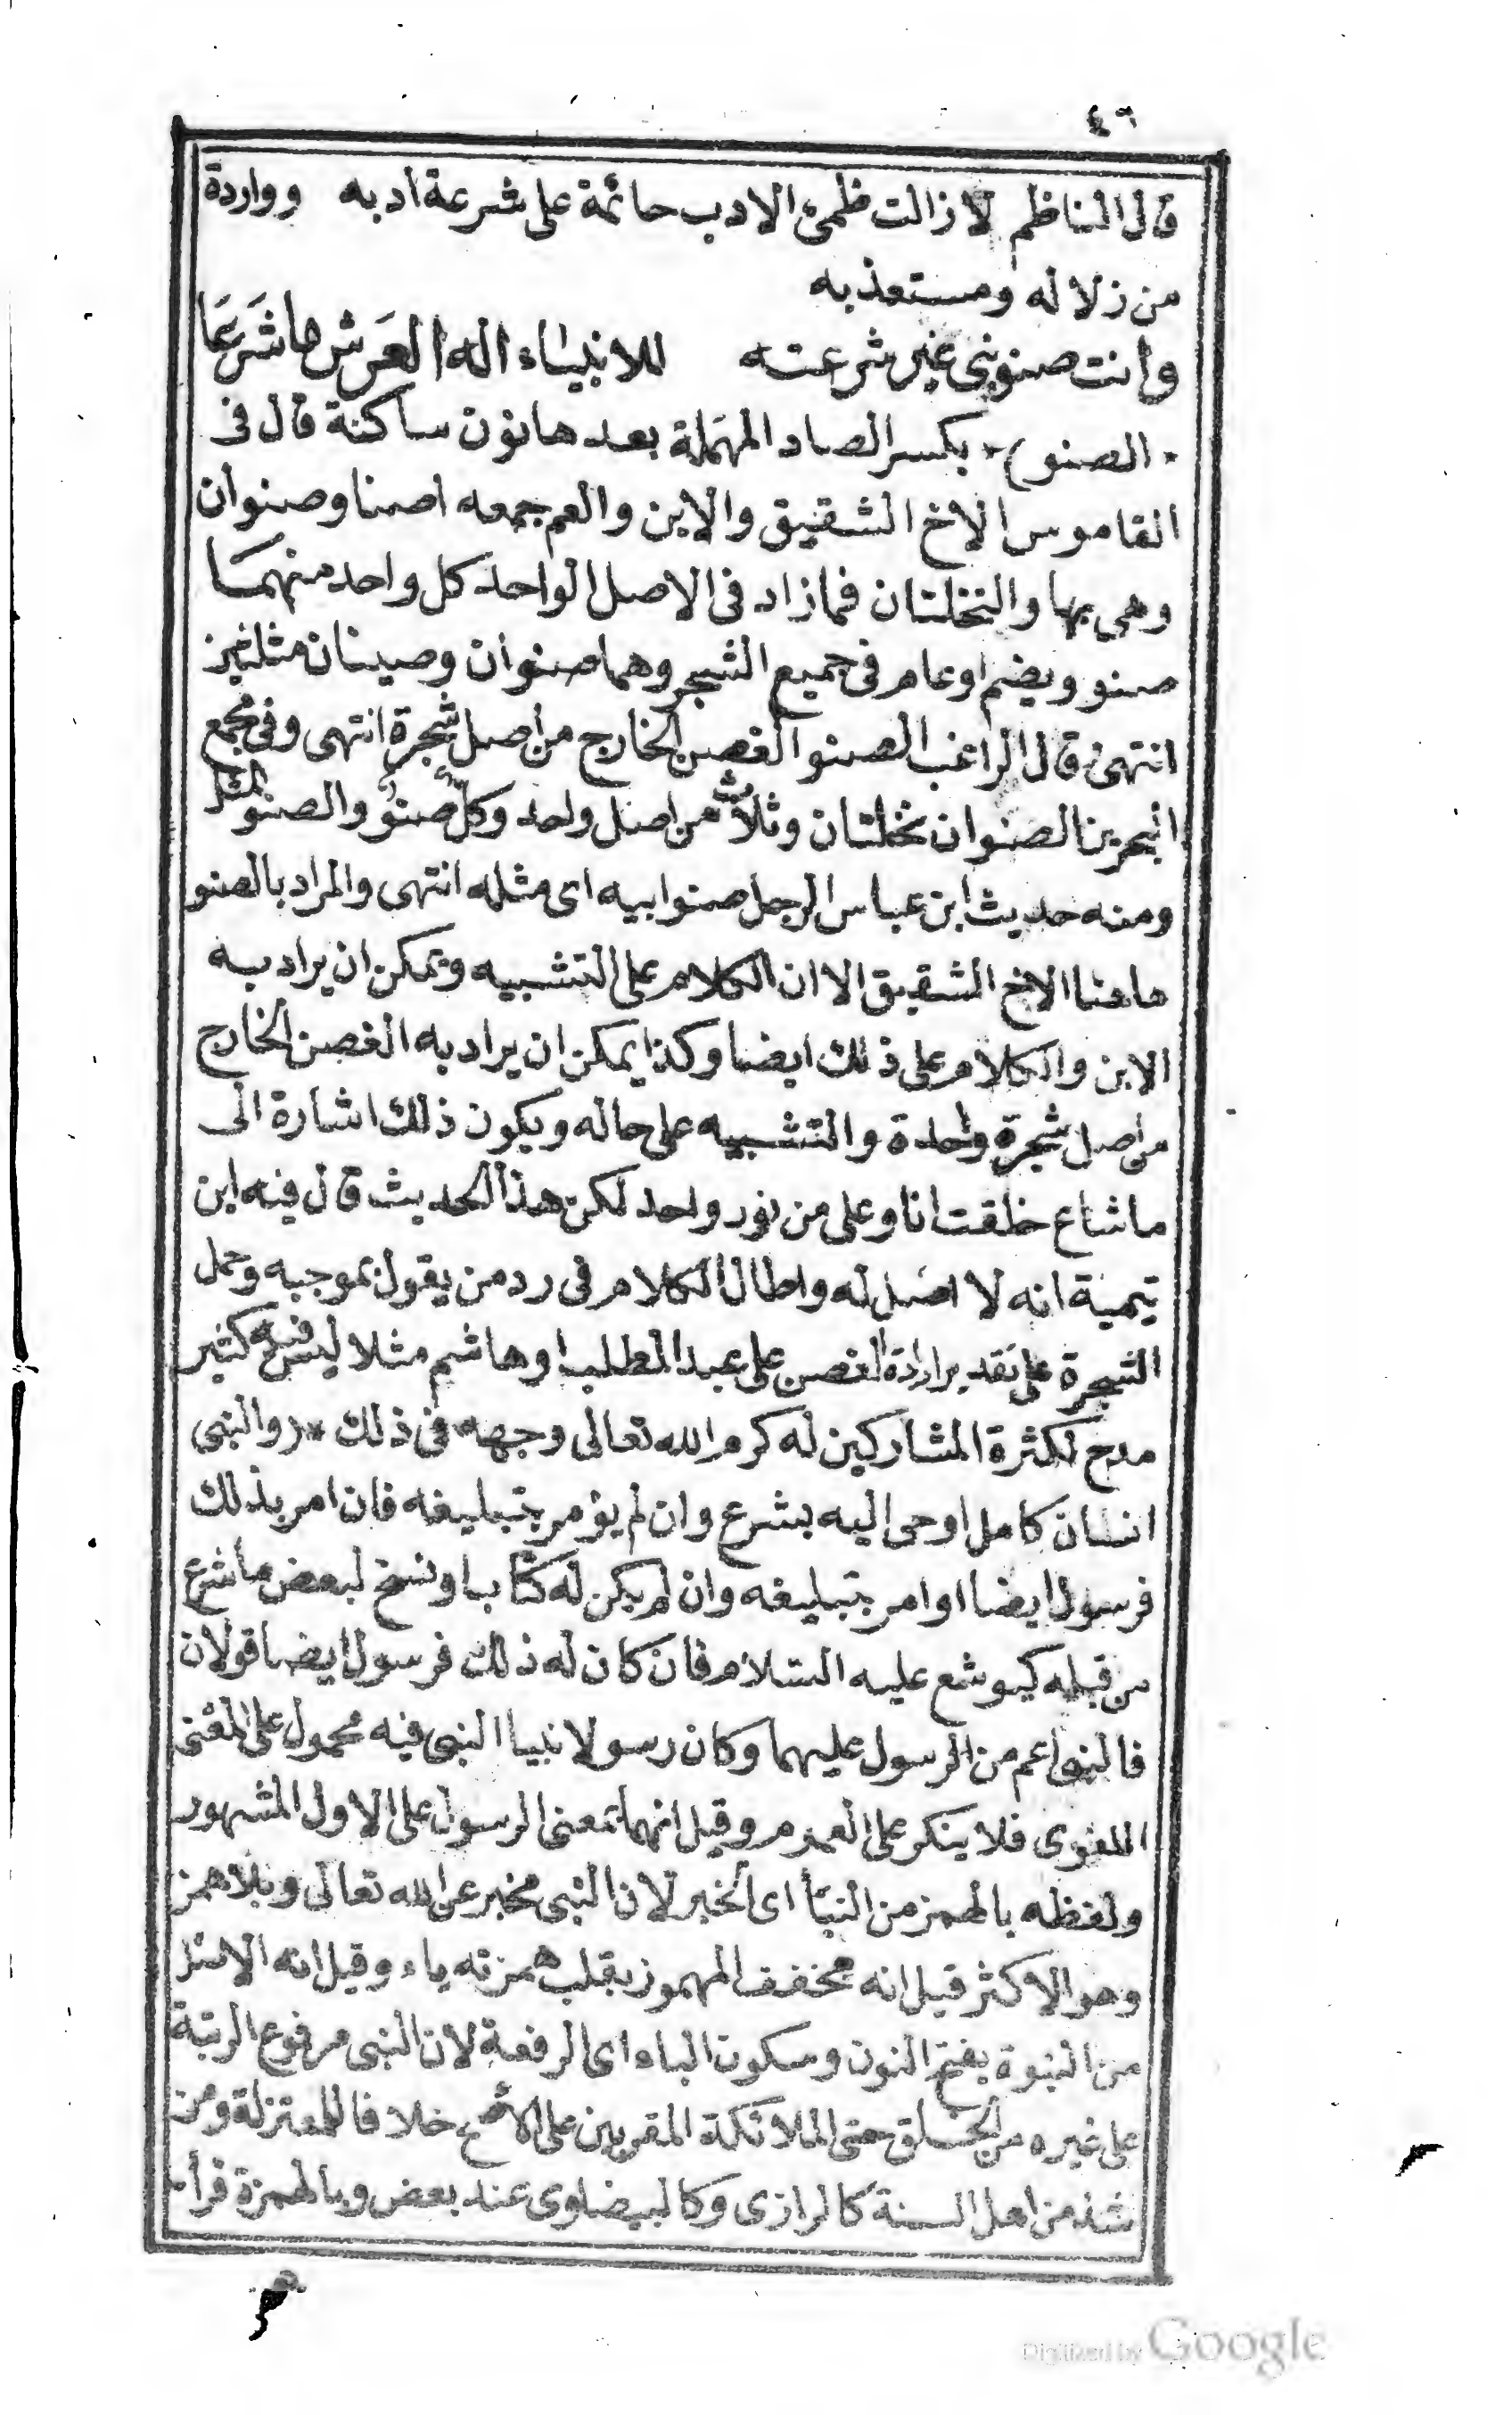 ٤٦
قال الناظم لا زالت ظمئ الادب حائمة على شرعة ادبه وواردة
من زلاله ومستعذبه
وانت صنو نبى غير شرعته للانبياء اله العرش ما شَرَعَا
* الصنو)* بكسر الصاد المهملة بعدها نون ساكنة قال فى
القاموس الاخ الشقيق والابن والعم جمعه اصنا وصنوان
وهى بها والنخلتان فمازاد فى الاصل الواحد كل واحد منهما
صنو ويضم او عام فى جميع الشجر وهما صنوان وصينان مثلين
انتهى قال الراغب الصنو الغصن الخارج من اصل شجرة انتهى وفى مجمع
البحرين الصنوان نخلتان وثلاث من اصل واحد وكل صنو والصنو المثل
ومنه حديث ابن عباس الرجل صنوابيه اى مثله انتهى والمراد بالصنو
هاهنا الاخ الشقيق الا ان الكلام على التشبيه ويمكن ان يراد به
الابن والكلام على ذلك ايضا وكذا يمكن ان يراد به الغصن الخارج
من اصل شجرة واحدة والتشبيه على حاله ويكون ذلك اشارة الى
ما شاع خلقت انا وعلى من نور واحد لكن هذا الحديث قال فيه ابن
تيمية انه لا اصل له واطال الكلام فى رد من يقول بموجبه وحمل
الشجرة على تقدير ارادة الغصن على عبد المطلب او هاشم مثلا ليس فيه كثير
مدح لكثرة المشاركين له كرم الله تعالى وجهه فى ذلك *(والنبى
انسان كامل اوحى اليه بشرع وان لم يؤمر بتبليغه فان امر بذلك
فرسول ايضا او امر بتبليغه وان لم يكن له كتاب او نسخ لبعض ما شرع
من قبله كيوشع عليه السلام فان كان له ذلك فرسول ايضا قولان
فالنبى اعم من الرسول عليهما وكان رسولا نبيا النبى فيه محمول على المعنى
اللغوى فلا ينكر على العموم وقيل انهما بمعنى الرسول على الاول المشهور
ولفظه بالهمز من النبأ اى الخبر لان النبى مخبر عن الله تعالى وبلا همز
وهو الاكثر قيل انه مخفف المهموز بقلب همزته ياء وقيل انه الاصل
من النبوة بفتح النون وسكون الباء اى الرفعة لان النبى مرفوع الرتبة
على غيره من الخلق حتى الملائكة المقربين على الاصح خلافا للمعتزلة ومن
شذ من اهل السنة كالرازى وكالبيضاوى عند بعض وبالهمزة قرأ
Digitized by Google